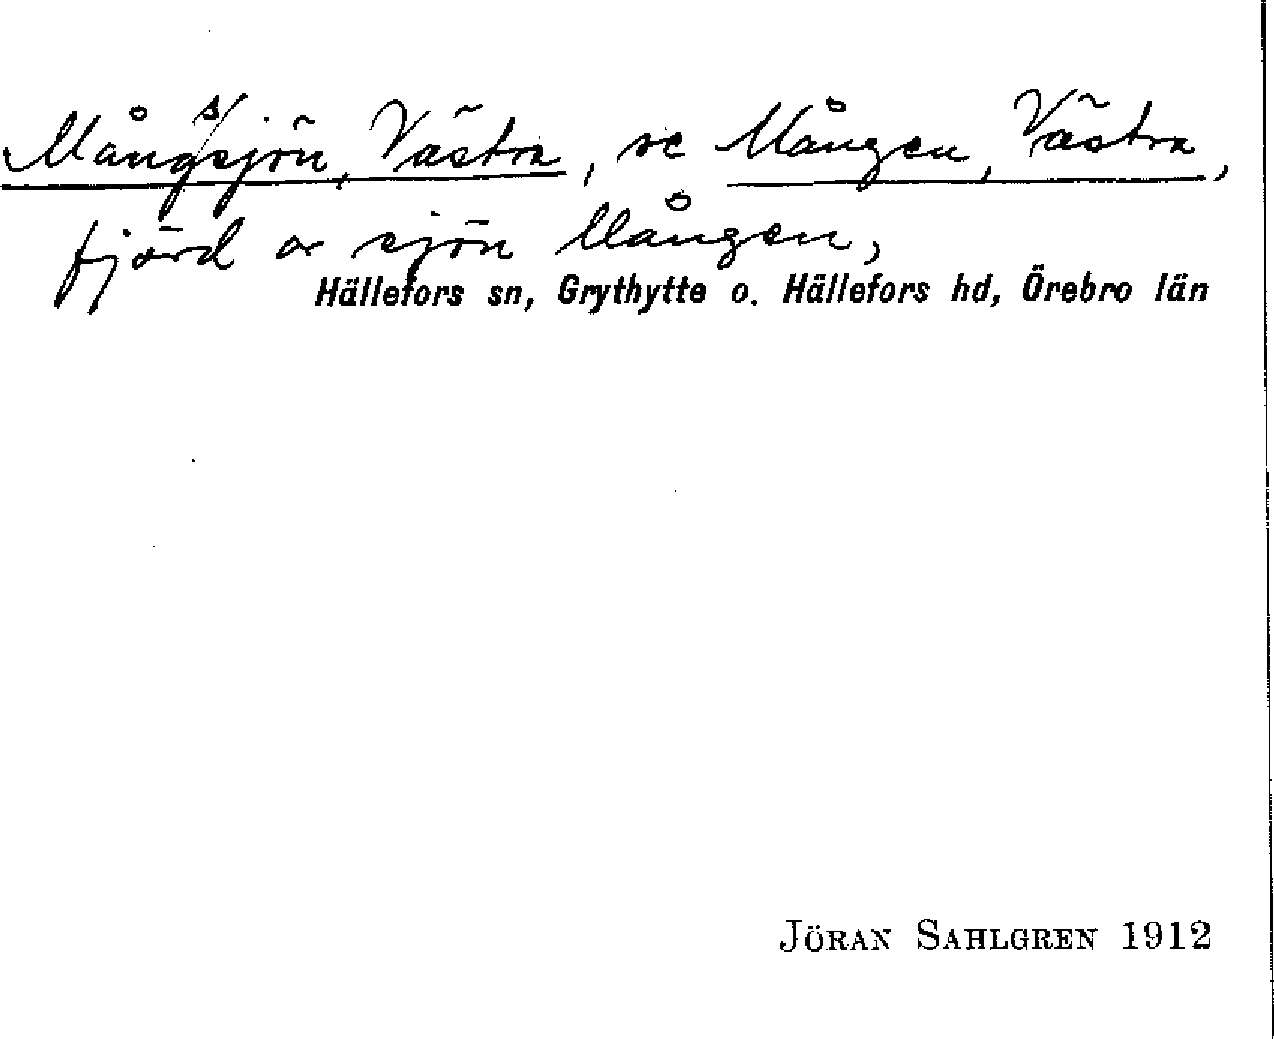 Mångssjön, Västra, se Mången, Västra,
fjärd av sjön Mången,
Hällefors sn, Grythytte o. Hällefors hd, Örebro län
JÖRAN SAHLGREN 1912